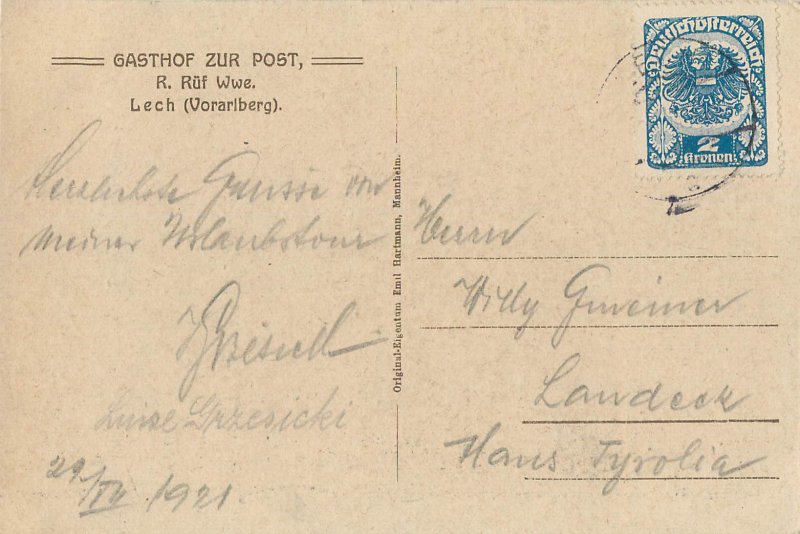 GASTHOF ZUR POST,
R. Rüf Wwe.
Lech (Vorarlberg).
Deutschösterreich
2
Kronen
Herzlichste Grüsse von
meiner Urlaubstour
Luise Grzesicki
1921
Original-Eigentum Emil Hartmann, Mannheim.
Herrn
Willy
Landeck
Haus Tyrolia